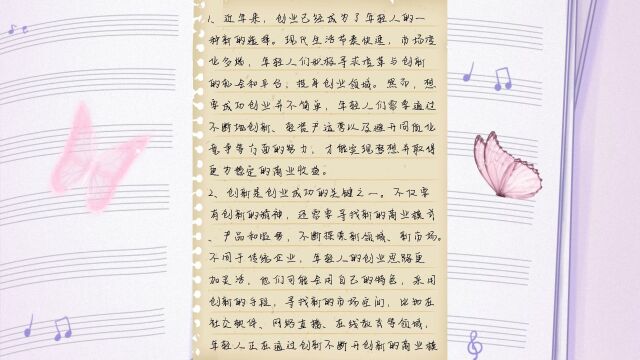 1、近年来，创业已经成为了年轻人的一
种新的选择。现代生活节奏快速，市场变
化多端，年轻人们积极寻求改革与创新
的机会和平台，投身创业领域。然而，想
要成功创业并不简单，年轻人们需要通过
不断地创新、轻资产运营以及避开同质化
竞争等方面的努力，才能实现梦想并取得
更为稳定的商业收益。
2、创新是创业成功的关键之一。不仅要
有创新的精神，还需要寻找新的商业模式
、产品和服务，不断探索新领域、新市场。
不同于传统企业，年轻人的创业思路更
加灵活，他们可能会用自己的特色，采用
创新的手段，寻找新的市场空间，比如在
社交软件、网络直播、在线教育等领域，
年轻人正在通过创新不断开创新的商业模